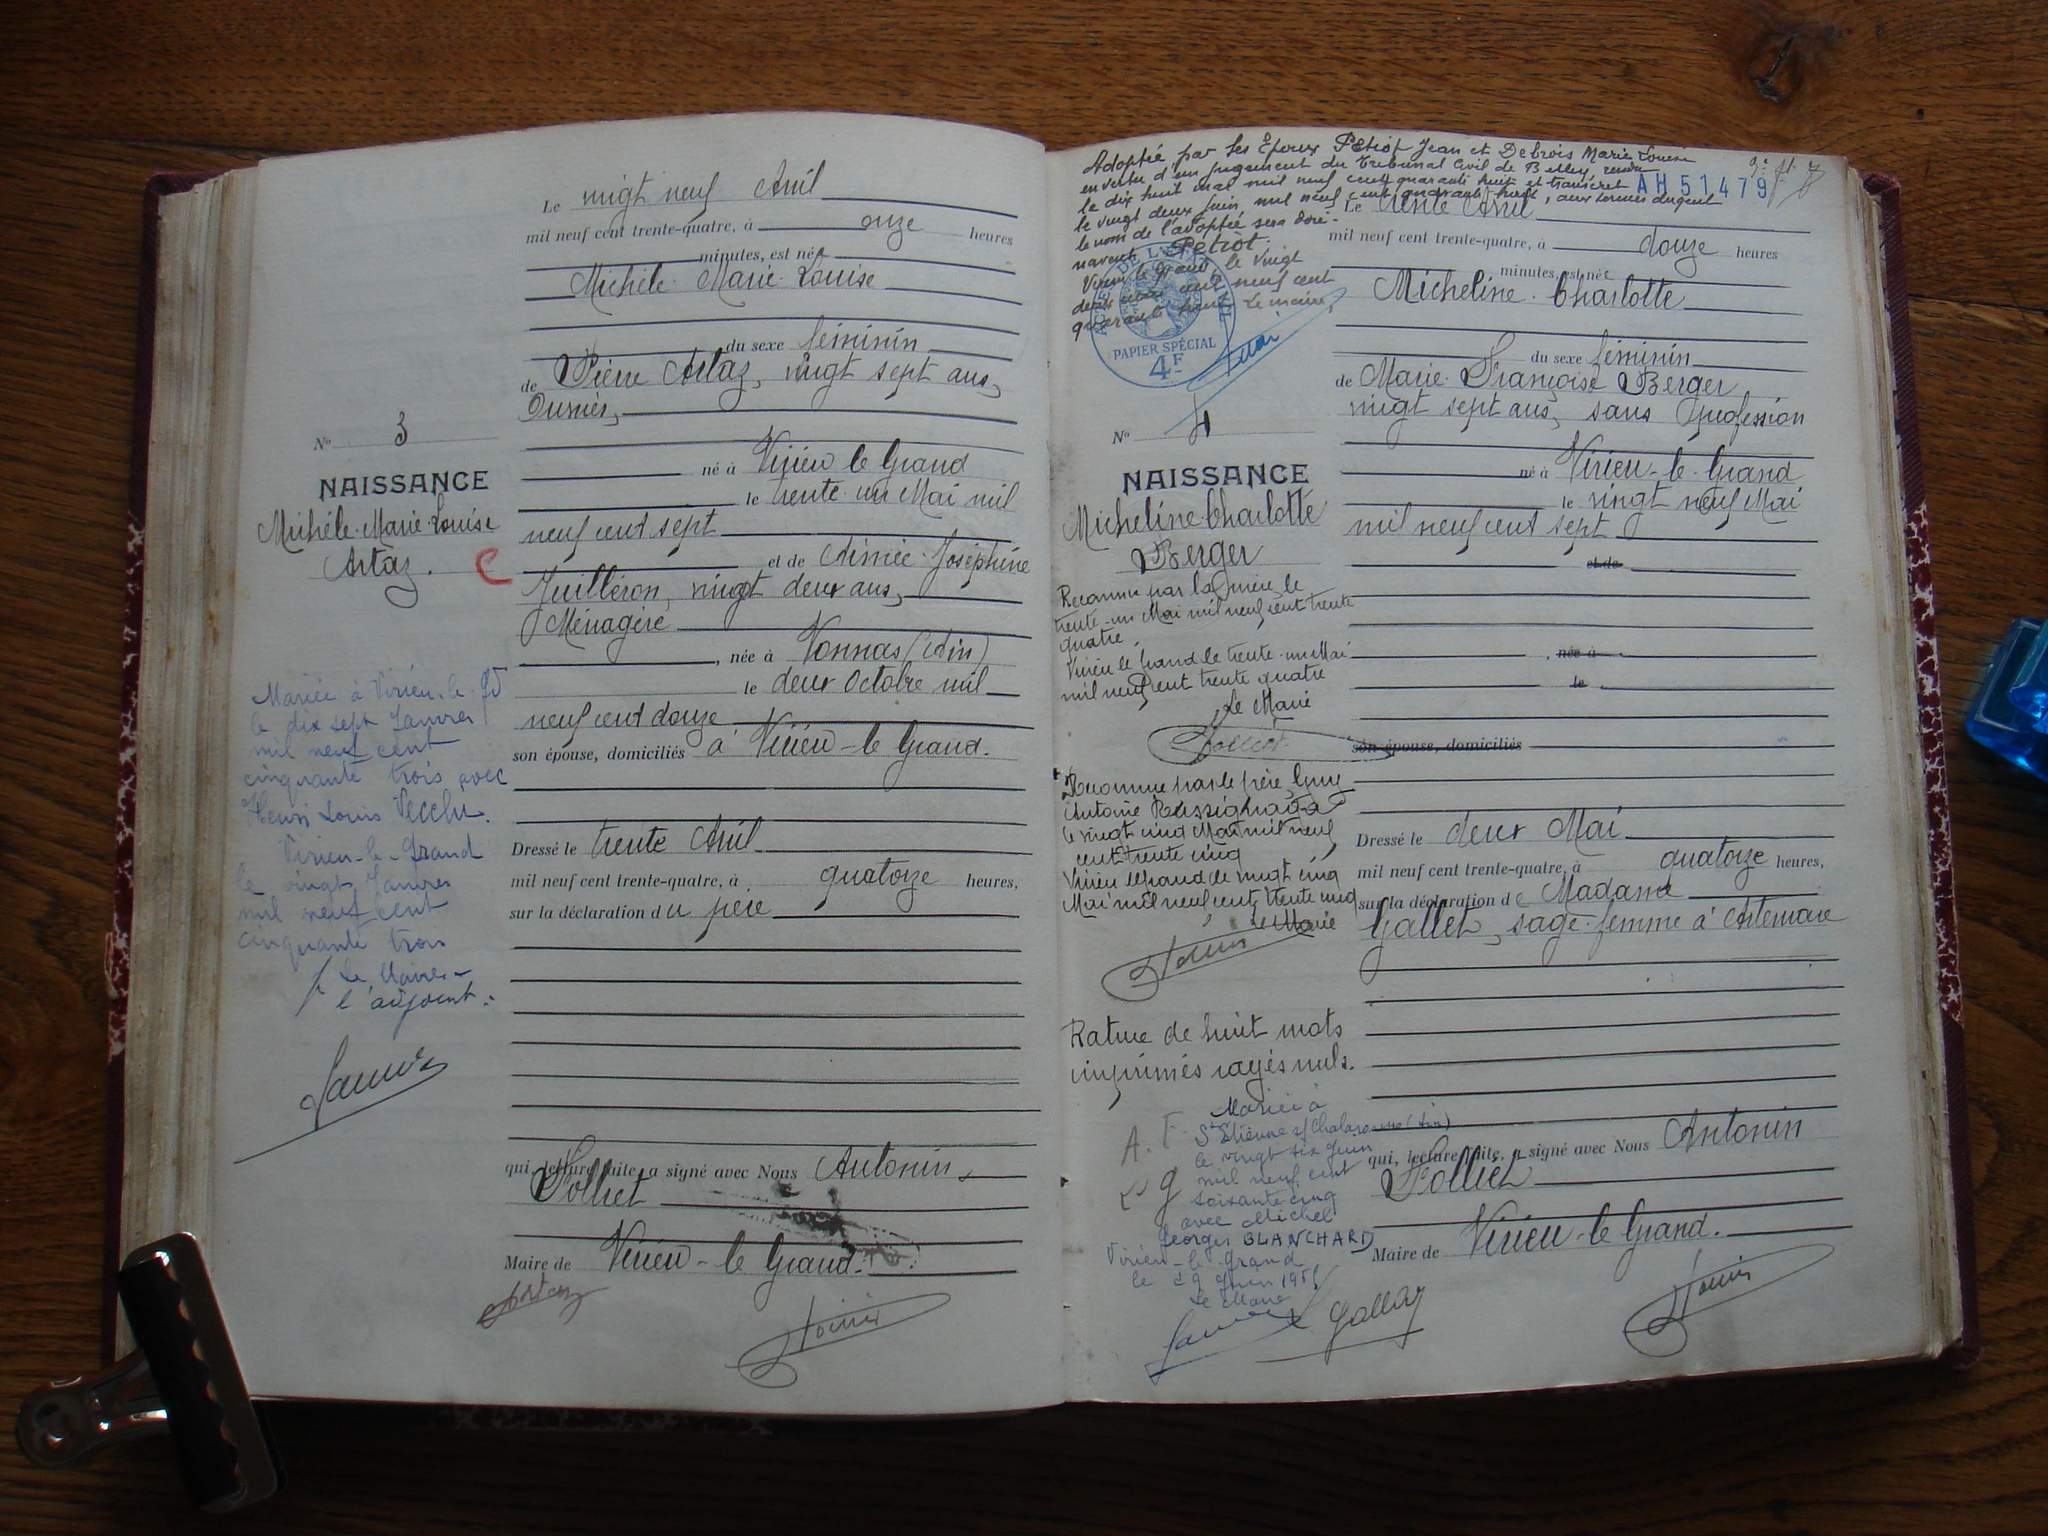 Le vingt neuf Avril
mil neuf cent trente-quatre, à onze heures
minutes, est née
Michèle Marie Louise
du sexe féminin
de Pierre Artaz, vingt sept ans,
Ouvrier,
N° 3
NAISSANCE
Michèle Marie Louise
Artaz.
C
né à Virieu le Grand
le trente un Mai mil
neuf cent sept
et de Aimée Joséphine
Juilléron, vingt deux ans,
Ménagère
, née à Vonnas (Ain)
le deux Octobre mil
neuf cent douze
son épouse, domiciliés à Virieu-le Grand.
Mariée à Virieu-le-Gd
le dix sept Janvier
mil neuf cent
cinquante trois avec
Henri Louis
Virieu-le-Grand
le vingt Janvier
mil neuf cent
cinquante trois
Le Maire-
l'adjoint.
Dressé le trente Avril
mil neuf cent trente-quatre, à quatorze heures,
sur la déclaration du père
qui, lecture faite, a signé avec Nous Antonin
Folliet
Maire de Virieu-le Grand.
Artaz
Adoptée par les Époux Petiot Jean et Debrois Marie Louise
en vertu d'un jugement du Tribunal Civil de Belley, rendu
le dix huit mai mil neuf cent quarante huit et transcrit
le vingt deux juin mil neuf cent quarante huit, aux termes duquel
le nom de l'adoptée sera doré-
navant Petiot.
Virieu le Grand le vingt
deux mil neuf cent
quarante Le maire,
AH 51479
PAPIER SPÉCIAL
4F
Le trente Avril
mil neuf cent trente-quatre, à douze heures
minutes, est née
Micheline Charlotte
du sexe féminin
de Marie Françoise Berger
vingt sept ans, sans profession
N° 4
NAISSANCE
Micheline Charlotte
Berger
né à Virieu-le-Grand
le vingt neuf Mai
mil neuf cent sept
et de
, née à
le
son épouse, domiciliés
Reconnue par la mère le
trente-un Mai mil neuf cent trente
quatre,
Virieu le Grand le trente-un Mai
mil neuf cent trente quatre
Le Maire
Folliet
Reconnue par le père,
Antoine
le vingt cinq Mai mil neuf
cent trente cinq
Virieu le Grand le vingt cinq
Mai mil neuf cent trente cinq
Le Maire
Dressé le deux Mai
mil neuf cent trente-quatre, à quatorze heures,
sur la déclaration de Madame
Gallet, sage-femme à Artemare
Rature de huit mots
imprimés rayés nuls.
Mariée à
St Etienne s/ Chalaronne (Ain)
le vingt six Juin
mil neuf cent
avec Michel
Georges BLANCHARD
Virieu-le-Grand
le 29 Juin
Le Maire
qui, lecture faite, a signé avec Nous Antonin
Folliet
Maire de Virieu-le Grand.